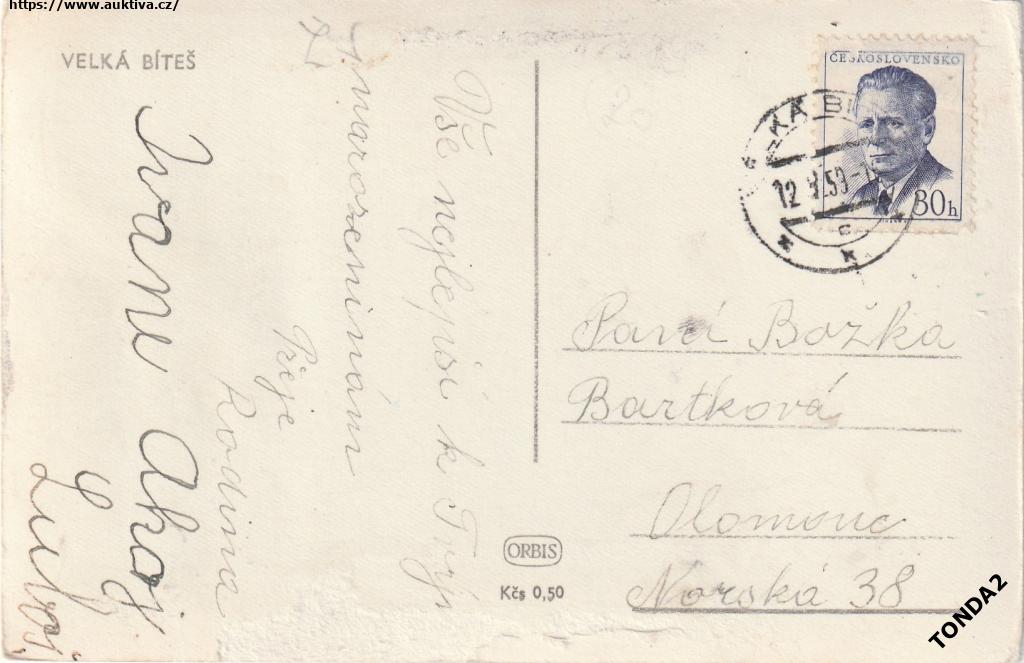 https://www.auktiva.cz/
VELKÁ BÍTEŠ
Vše nejlepší k Tvým
narozeninám
Přeje
Rodina
Ivane Ahoj
ČESKOSLOVENSKO
30h
KÁ BÍ
12
59
Paní Božka
Bartková
Olomouc
Norská 38
ORBIS
Kčs 0,50
TONDA2